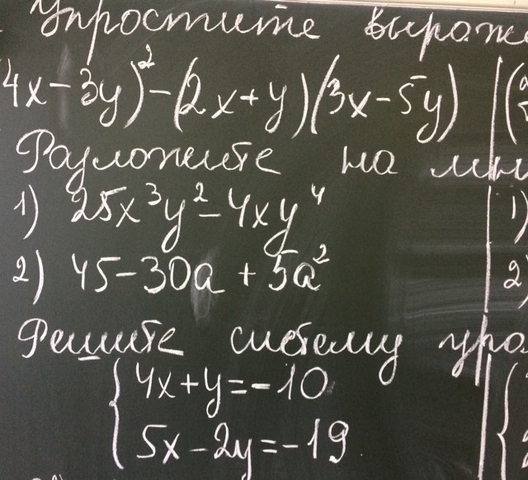 Упростите выраже
4x-3y)²-(2x+y)(3x-5y)
Разложите на мн
1) 25x³y²-4xy⁴
2) 45-30a+5a²
Решите систему ура
{4x+y=-10
5x-2y=-19
1)
2)